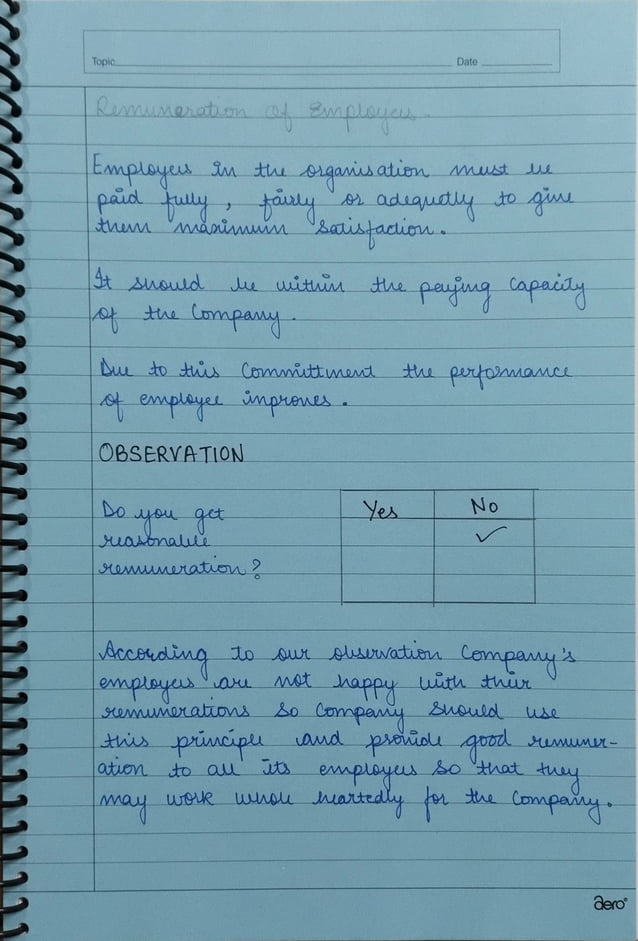 Topic Date
Remuneration of Employees.
Employees in the organisation must be
paid fully, fairly or adequetly to give
them maximum satisfaction.
It should be within the paying capacity
of the Company.
Due to this Committment the performance
of employee improves.
OBSERVATION
Yes No
Do you get
reasonable
remuneration?
According to our observation Company's
employees are not happy with their
remunerations so Company should use
this principle and provide good remuner-
ation to all its employees so that they
may work whole heartedly for the Company.
aero